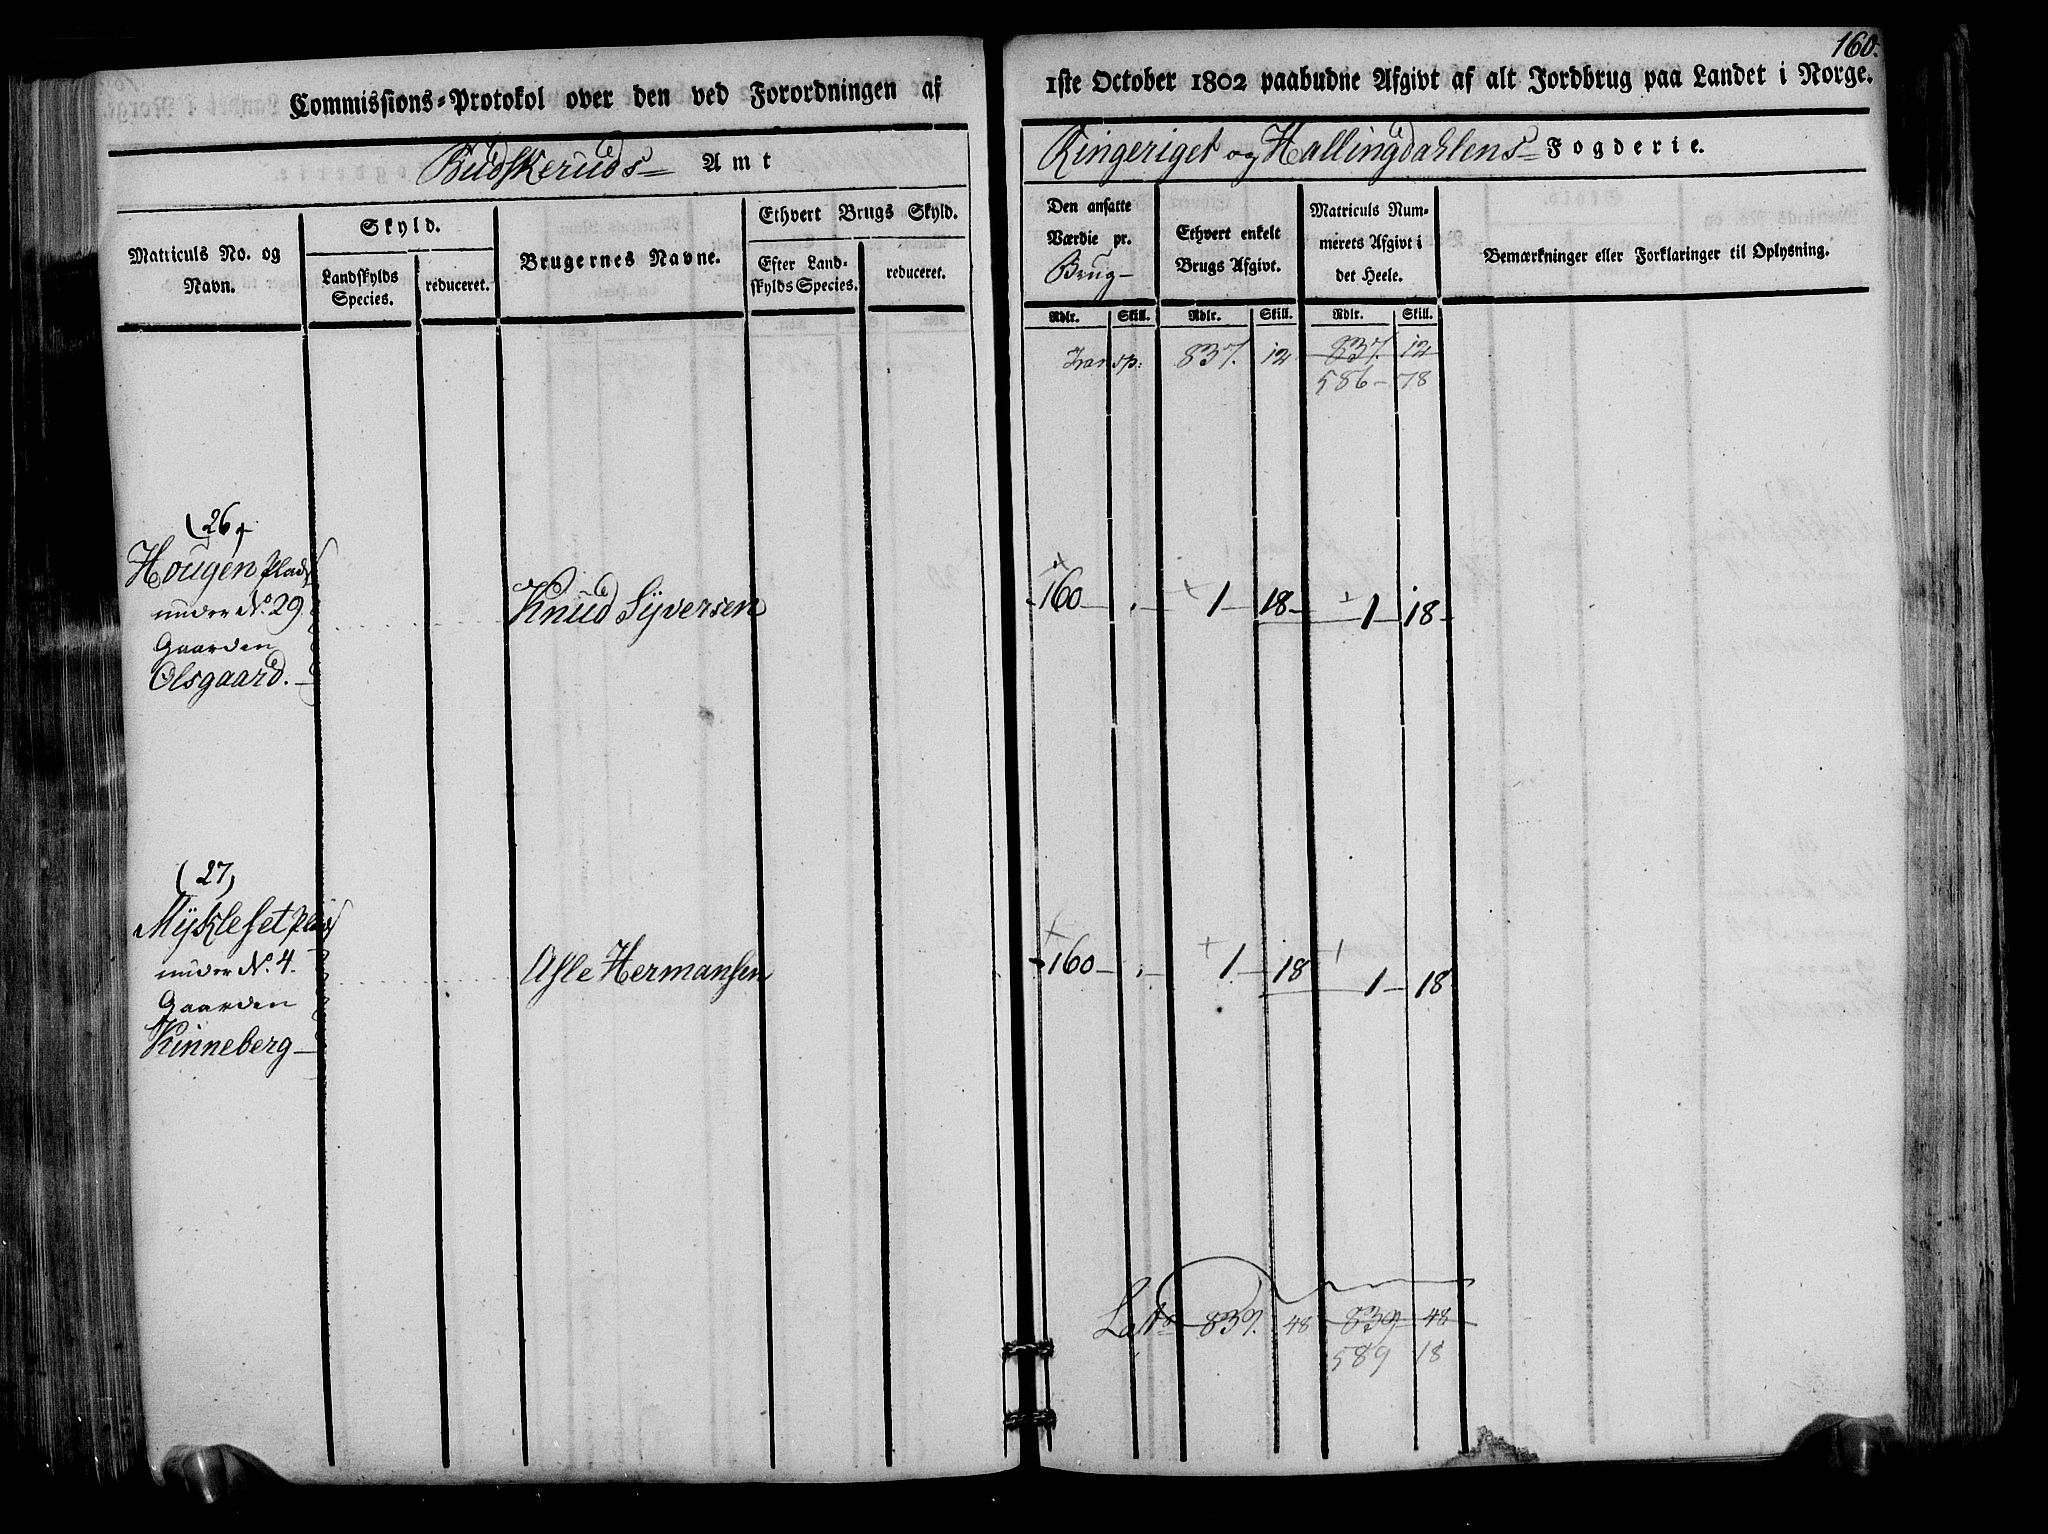 160.
Commissions-Protokol over den ved Forordningen af 1ste October 1802 paabudne Afgivt af alt Jordbrug paa Landet i Norge.
Budskeruds Amt
Ringeriget og Hallingdahlens Fogderie.
Matriculs No. og Navn.
Skyld.
Landskylds Species.
reduceret.
Brugernes Navne.
Ethvert Brugs Skyld.
Efter Landskylds Species.
reduceret.
Den ansatte Værdie pr. Brug
Ethvert enkelt Brugs Afgivt.
Matriculs Nummerets Afgivt i det Heele.
Bemærkninger eller Forklaringer til Oplysning.
Rdlr. Skill. Rdlr. Skill. Rdlr. Skill.
Transp: 837. 12 837. 12
586 - 78
(26)
Hougen Plads
under No. 29
Gaarden
Olsgaard.
Knud Syversen 160 - 1 - 18 - 1 - 18 -
(27)
Mykleset Plads
under No. 4.
Gaarden
Vinneberg
Asle Hermansen 160 - 1 - 18 1 - 18
Lats 839. 48 839. 48
589 18